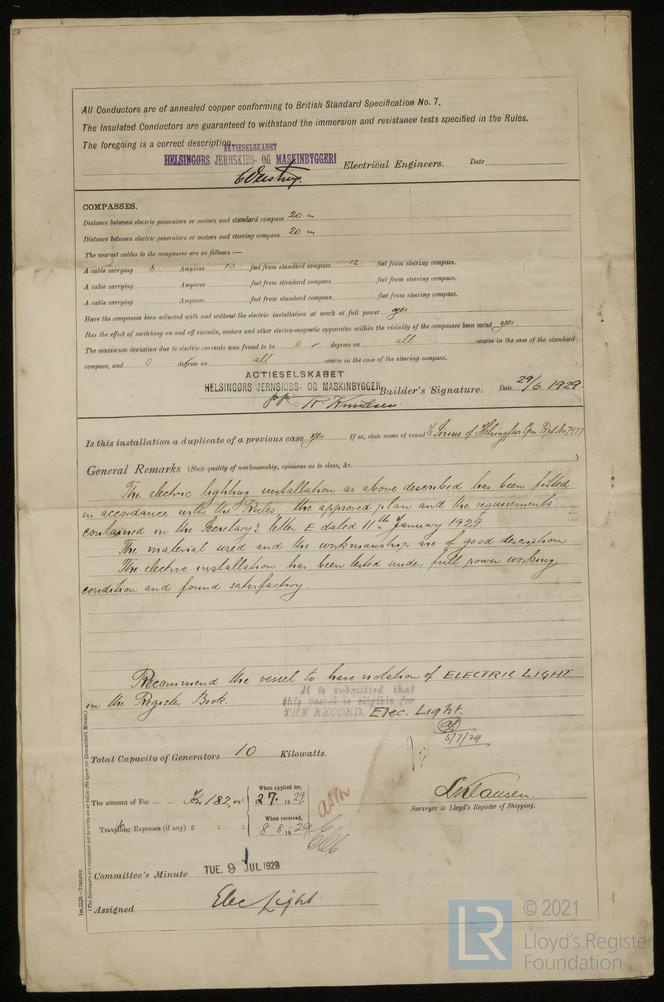 All Conductors are of annealed copper conforming to British Standard Specification No. 7.
The Insulated Conductors are guaranteed to withstand the immersion and resistance tests specified in the Rules.
The foregoing is a correct description.
ACTIESELSKABET
HELSINGØRS JERNSKIBS- OG MASKINBYGGERI Electrical Engineers. Date
COMPASSES.
Distance between electric generators or motors and standard compass 20 m
Distance between electric generators or motors and steering compass 20 m
The nearest cables to the compasses are as follows:—
A cable carrying 8 Ampères 10 feet from standard compass 12 feet from steering compass.
A cable carrying Ampères feet from standard compass feet from steering compass.
A cable carrying Ampères feet from standard compass feet from steering compass.
Have the compasses been adjusted with and without the electric installation at work at full power yes
Has the effect of switching on and off circuits, motors and other electro-magnetic apparatus within the vicinity of the compasses been noted yes
The maximum deviation due to electric currents was found to be 0 degrees on all course in the case of the standard
compass, and 0 degrees on all course in the case of the steering compass.
ACTIESELSKABET
HELSINGØRS JERNSKIBS- OG MASKINBYGGERI Builder's Signature. Date 29/6 1929
pp Knudsen
Is this installation a duplicate of a previous case yes If so, state name of vessel Sirius of Helsingfors
General Remarks (State quality of workmanship, opinions as to class, &c.
The electric lighting installation as above described has been fitted
in accordance with the Rules, the approved plan and the requirements
contained in the Secretary's letter E dated 11th January 1929
The material used and the workmanship are of good description
The electric installation has been tested under full power working
condition and found satisfactory
Recommend the vessel to have notation of ELECTRIC LIGHT
in the Register Book.
It is submitted that
this vessel is eligible for
THE RECORD. Elec. Light.
5/7/29
Total Capacity of Generators 10 Kilowatts.
The amount of Fee ... ... Kr. 182.00 When applied for, 2.7.1929.
Travelling Expenses (if any) £ : : When received, 8.8.1929
Surveyor to Lloyd's Register of Shipping.
Committee's Minute TUE. 9 JUL 1929
Assigned Elec Light
1m.12.28.—Transfer.
© 2021
LR
Lloyd's Register
Foundation